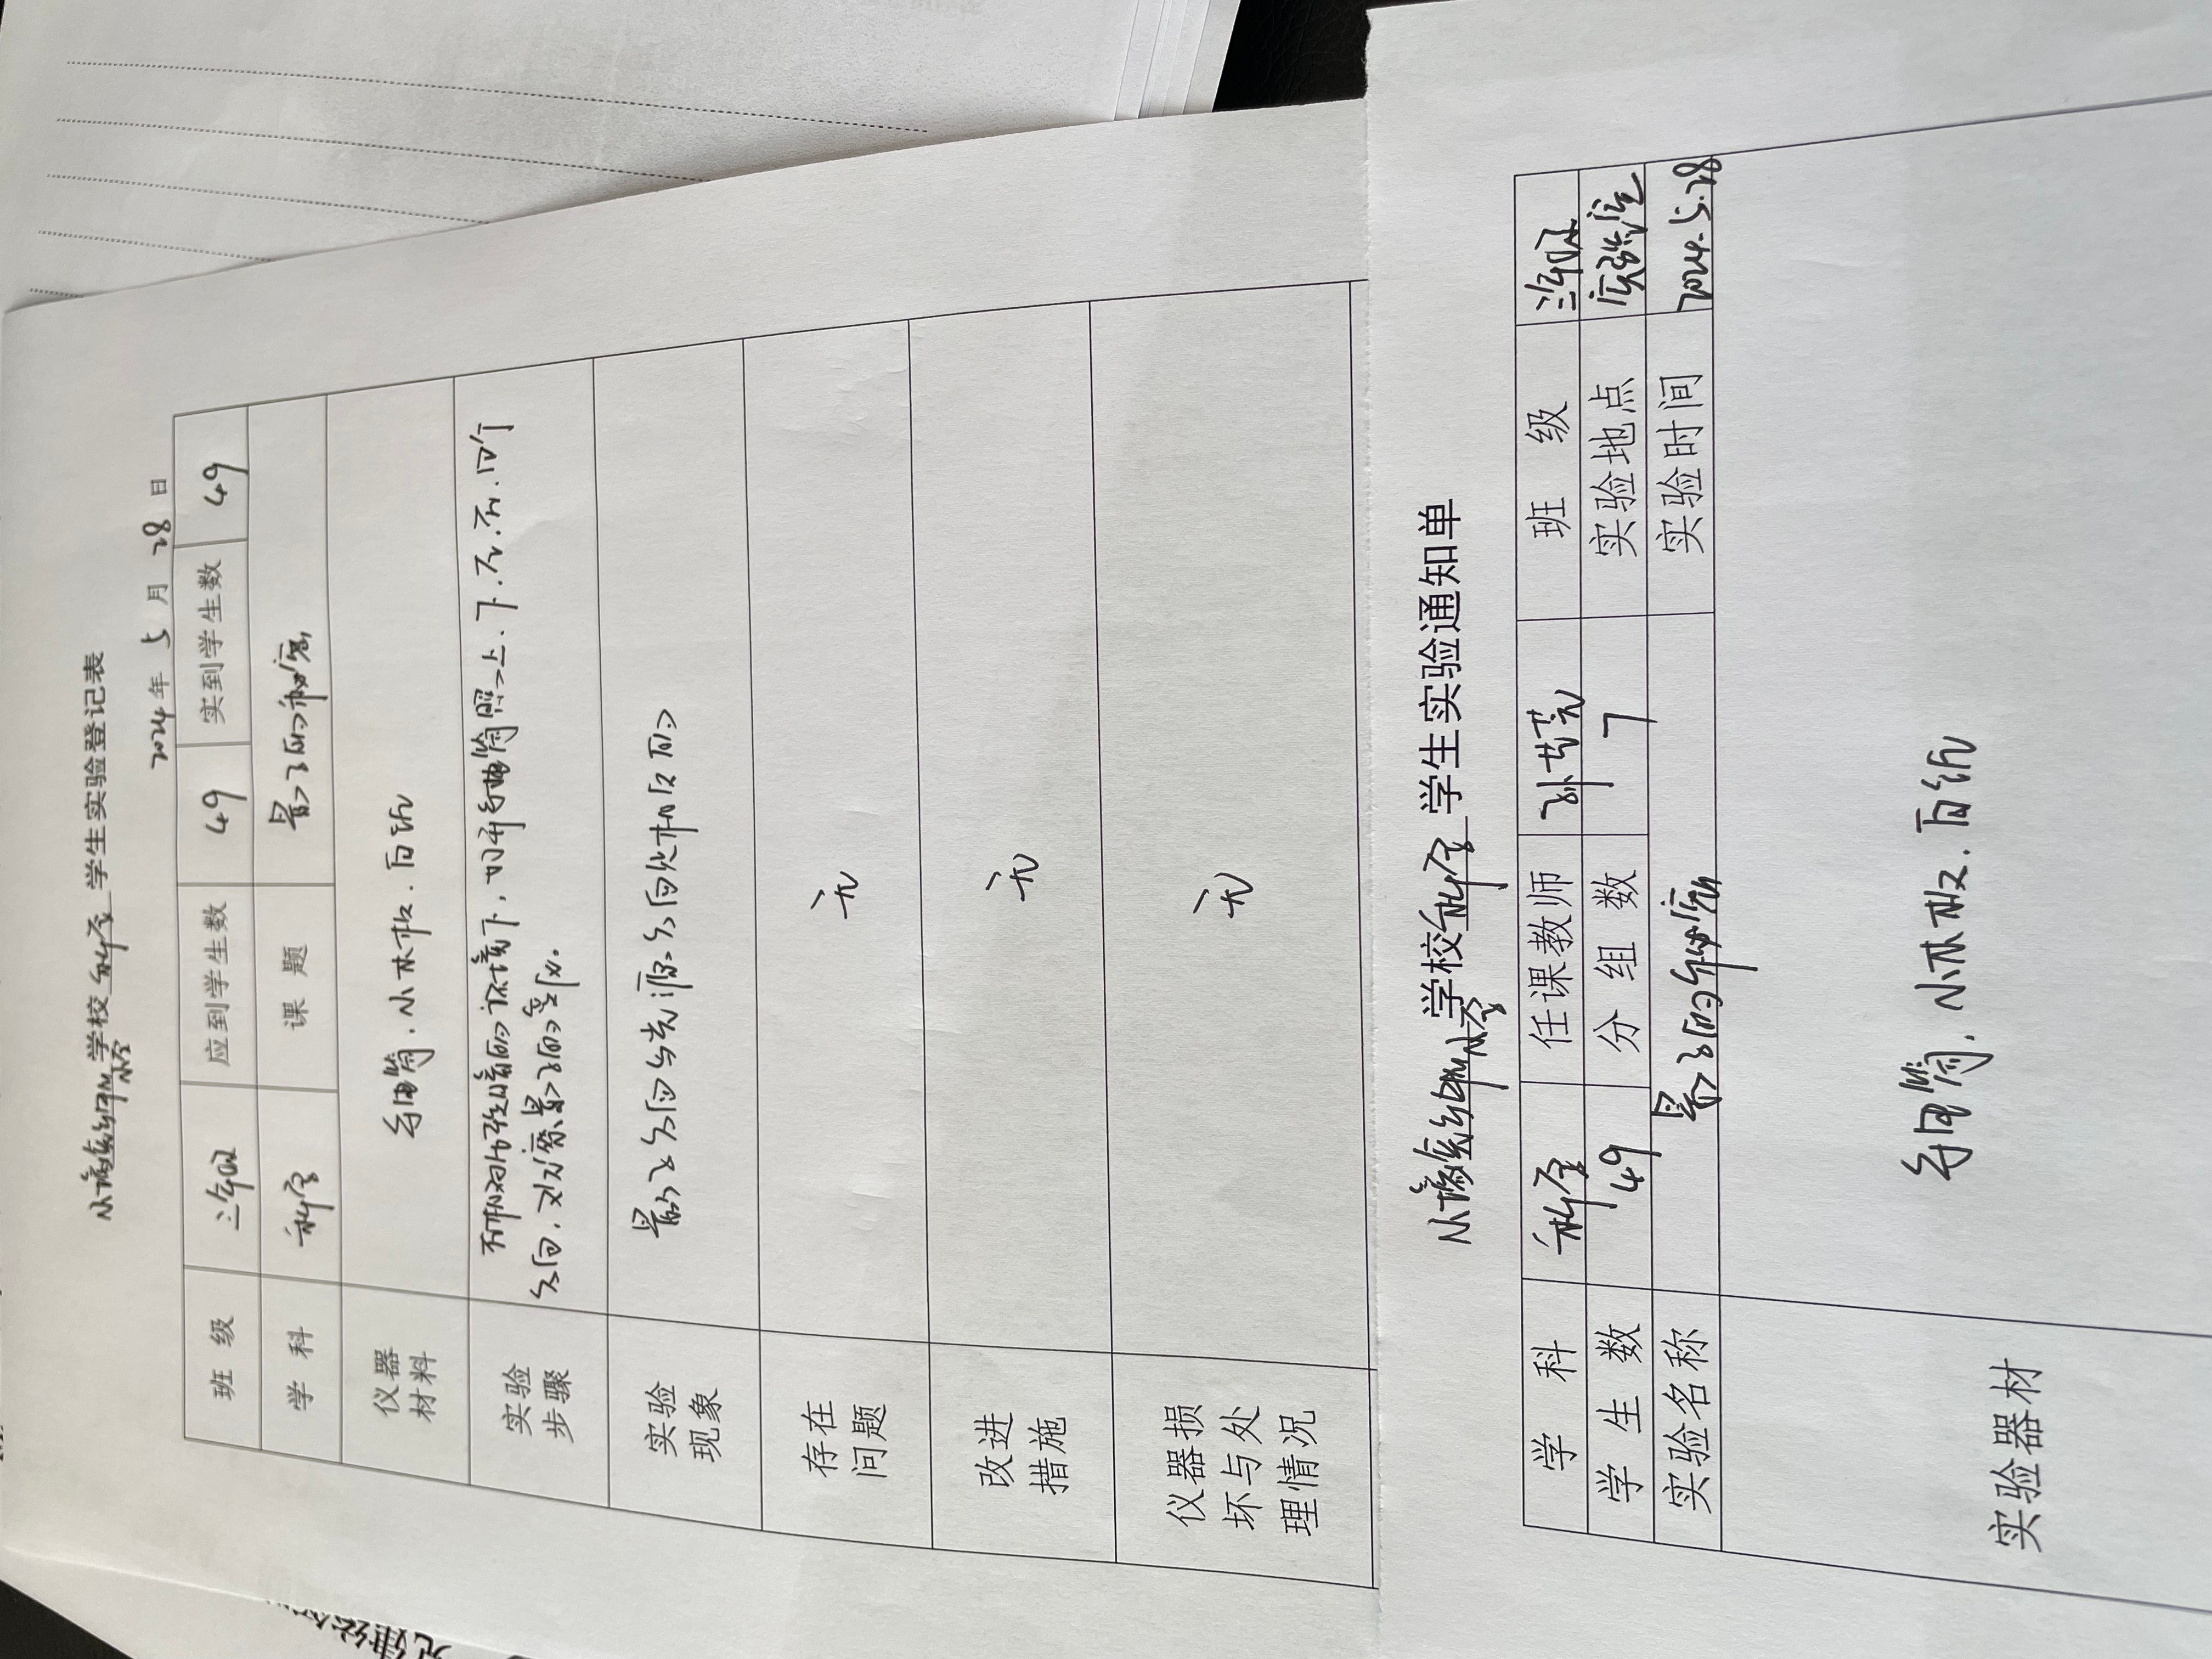 学校科学学生实验登记表
2024年 5 月 28 日
班 级 三年级 应到学生数 49 实到学生数 49
学 科 科学 课 题 影子的秘密
仪器材料 手电筒.小木板.白纸
实验步骤 在相对比较暗的环境下,打开手电筒照上.下.左.右.四个
方向,观察影子的变化.
实验现象 影子方向与光源方向是相反的
存在问题 无
改进措施 无
仪器损坏与处理情况 无
学校科学学生实验通知单
学 科 科学 任课教师 班 级 三年级
学 生 数 49 分 组 数 7 实验地点 实验室
实验名称 影子的秘密 实验时间 2024.5.28
实验器材 手电筒.小木板.白纸